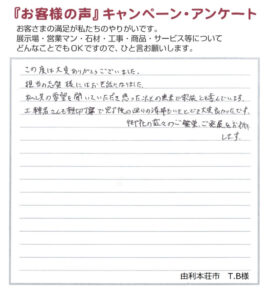 『お客様の声』キャンペーン・アンケート
お客さまの満足が私たちのやりがいです。
展示場・営業マン・石材・工事・商品・サービス等について
どんなことでもOKですので、ひと言お願いします。
この度は大変ありがとうございました。
担当の 様にはお世話になりました。
私共の希望を聞いていただき思った以上の出来で家族とも喜んでいます。
工事 さんも親切丁寧で 後の回りの清掃もいただき大変良かったです。
御社の益々のご繁栄、ご発展をお祈り
します。
由利本荘市 T.B様